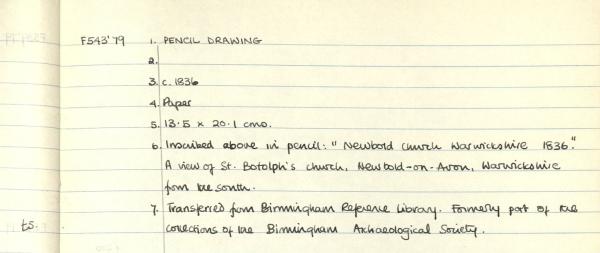 F543'79 1. PENCIL DRAWING
2.
3. c. 1836
4. Paper
5. 13.5 x 20.1 cms.
6. Inscribed above in pencil: "Newbold Church Warwickshire 1836."
A view of St. Botolph's church, Newbold-on-Avon, Warwickshire
from the south.
7. Transferred from Birmingham Reference Library. Formerly part of the
ts. collections of the Birmingham Archaeological Society.